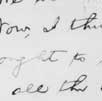 Now, I thi
ought to
all the